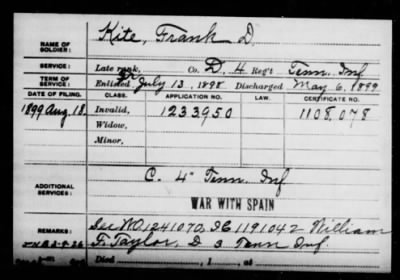 NAME OF SOLDIER: Kite, Frank D.
SERVICE: Late rank, Co. D, 4 Reg't Tenn. Inf
TERM OF SERVICE: Enlisted July 13, 1898 Discharged May 6, 1899
DATE OF FILING. CLASS. APPLICATION NO. LAW. CERTIFICATE NO.
1899 Aug. 18. Invalid, 1233950 1108,078
Widow,
Minor,
ADDITIONAL SERVICES: C. 4" Tenn. Inf
WAR WITH SPAIN
REMARKS: See WO1241070, 1191042 William
F. Taylor, D 3 Tenn Inf.
Died , 1 , at